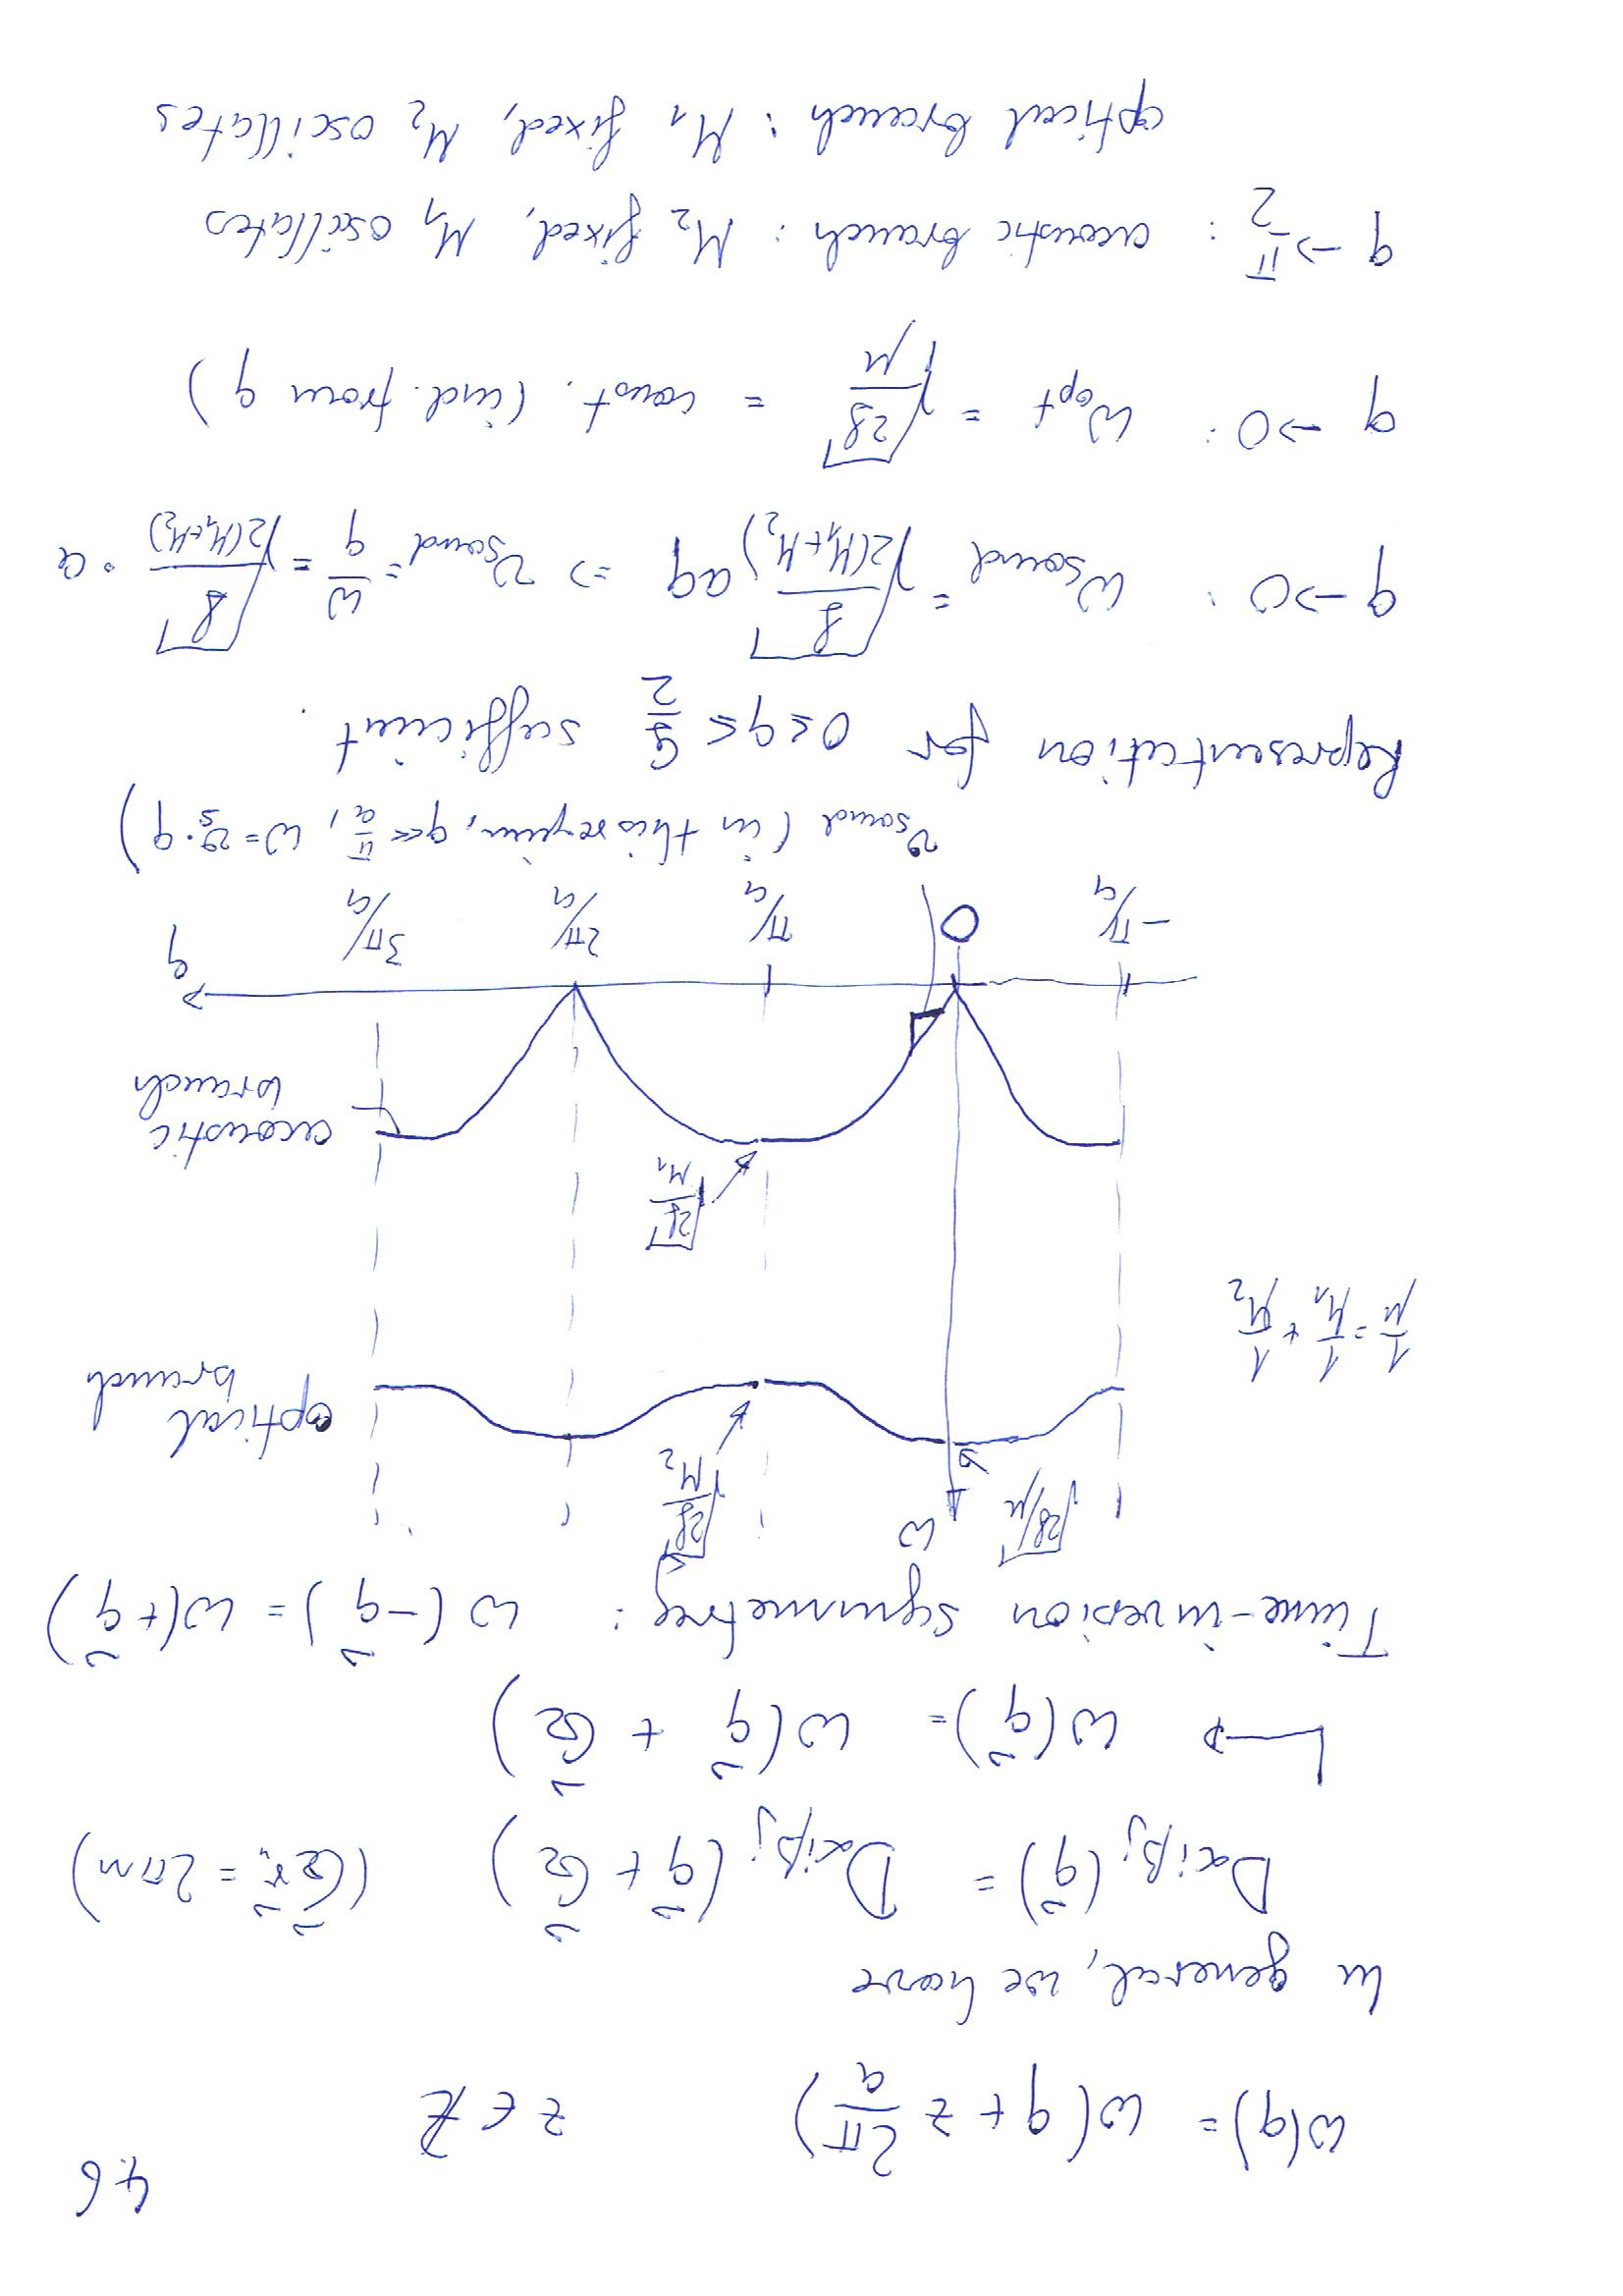 46
ω(q) = ω(q + z 2π/a) z ∈ ℤ
In general, we have
D_αiβj(q⃗) = D_αiβj(q⃗ + G⃗) (G⃗ r⃗_n = 2πm)
↳ ω(q⃗) = ω(q⃗ + G⃗)
Time-inversion symmetry: ω(-q⃗) = ω(+q⃗)
√(2f/μ) ω √(2f/M₂)
optical branch
1/μ = 1/M₁ + 1/M₂
√(2f/M₁)
acoustic branch
-π/a 0 π/a 2π/a 3π/a q
v_sound (in this regime, q << π/a, ω = v_s · q)
Representation for 0 ≤ q ≤ G/2 sufficient.
q → 0: ω_sound = √(f/2(M₁+M₂)) aq ⇒ v_sound = ω/q = √(f/2(M₁+M₂)) · a
q → 0: ω_opt = √(2f/μ) = const. (ind. from q)
q → π/2: acoustic branch: M₂ fixed, M₁ oscillates
optical branch: M₁ fixed, M₂ oscillates